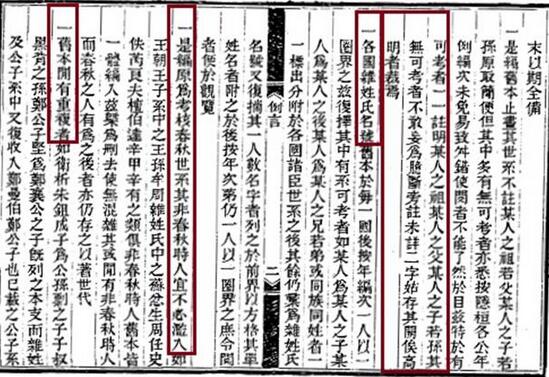 末以期全備
一是編舊本止書其世系不註某人之祖若父某人之子若
孫原取簡便但其中多有無可考者亦悉按隱桓各公年
編次未免易致舛錯使閱者不能了然於目茲特於有
可考者一一註明某人之祖某人之父某人之子若孫其
無可考者不敢妄爲臆斷考註未註二字始存其闕俟高
明者裁焉
一各國雜姓氏名號舊本於每一國後按年編次一人以一
圈界之茲復擇其中有系可考者如某人爲某人之子某
人爲某人之父某人爲某人之兄若弟或同族同姓者一
一標出分附於各國諸臣世系之後其餘仍彙爲雜姓氏
例言 二
名號又復摘其一人數名字者列之於前界以方格其單
姓名者附之於後按年次第仍一人以一圈界之庶令閱
者便於觀覽
一是編原爲考核春秋世系其非春秋時人宜不必濫入如
王朝王子系中之王孫牟周雜姓氏中之蘇忿生周任史
佚芮良夫檀伯達辛甲辛有之類俱非春秋時人舊本皆
一體編入茲槩爲刪去使無混雜其或閒有非春秋時人
而春秋之人有爲之後者亦仍存之以著世代
一舊本閒有重複者如衛析朱鉏成子爲公孫剽之子子叔
黑背之孫鄭公子堅爲鄭襄公之子既列之本支而雜姓
及公子系中又復收入鄭曼伯鄭公子也已載之公子